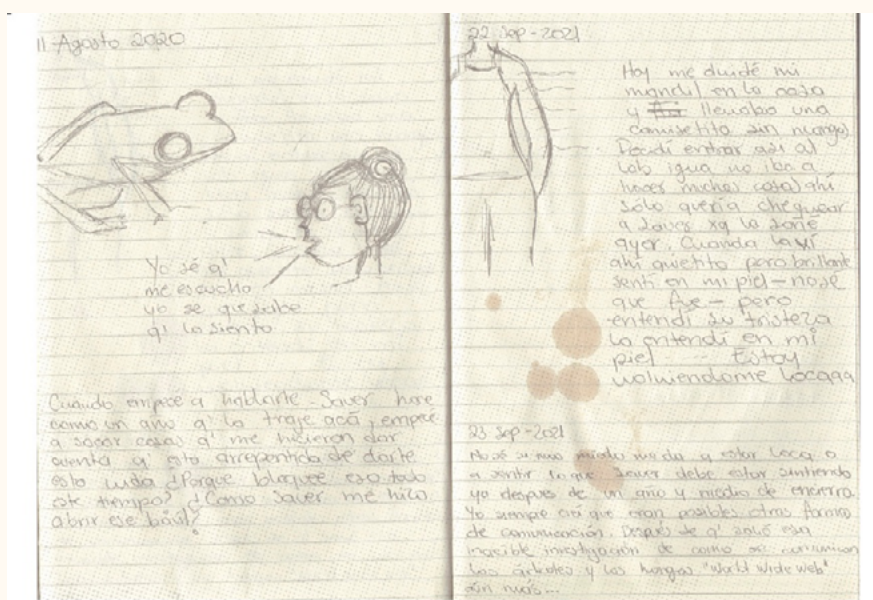 11 Agosto 2020
Yo sé q'
me escucho
yo se que sabe
q' lo siento
Cuando empecé a hablarte Saver hace
como un año q' lo traje acá, empecé
a sacar cosas q' me hicieron dar
cuenta q' esta arrepentida de darte
esta vida ¿Porque bloqueé eso todo
este tiempo? ¿Como Saver me hizo
abrir ese baúl?
22 Sep-2021
Hoy me olvidé mi
mandil en la casa
y llevaba una
camisetita sin mangas
Decidí entrar asi al
lab igual no iba a
hacer muchas cosas ahí
sólo quería chequear
a Saver xq lo soñé
ayer. Cuando la vi
ahí quietito pero brillante
sentí en mi piel - no sé
que fue - pero
entendí su tristeza
la entendí en mi
piel ---- Estoy
volviendome locaaa
23 Sep-2021
No sé si más miedo me da y estar loca o
a sentir lo que Saver debe estar sintiendo
ya despues de un año y medio de encierro
Yo siempre creí que eran posibles otras formas
de comunicación. Después de q' salió esa
increíble investigación de como se comunican
los árboles y los hongos "World Wide Web"
aún más...